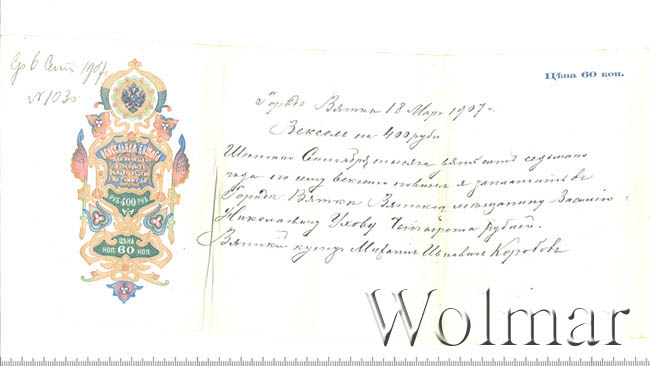 Ср 6 Сент 1907
№ 1030
Цѣна 60 коп.
ВЕКСЕЛЬНАЯ БУМАГА
РУБ. 400 РУБ.
ЦѢНА
КОП. 60 КОП.
Городъ Вятка 18 Март 1907 г.
Вексель на 400 рубл
Шестого Сентября тысяча девятьсот седьмого
года по сему векселю повинен я заплатить въ
Городѣ Вяткѣ Вятскому мѣщанину Василію
Николаевичу Ухову Четыреста рублей.
Вятскій купецъ Михаилъ Ивановичъ Коробовъ
Wolmar